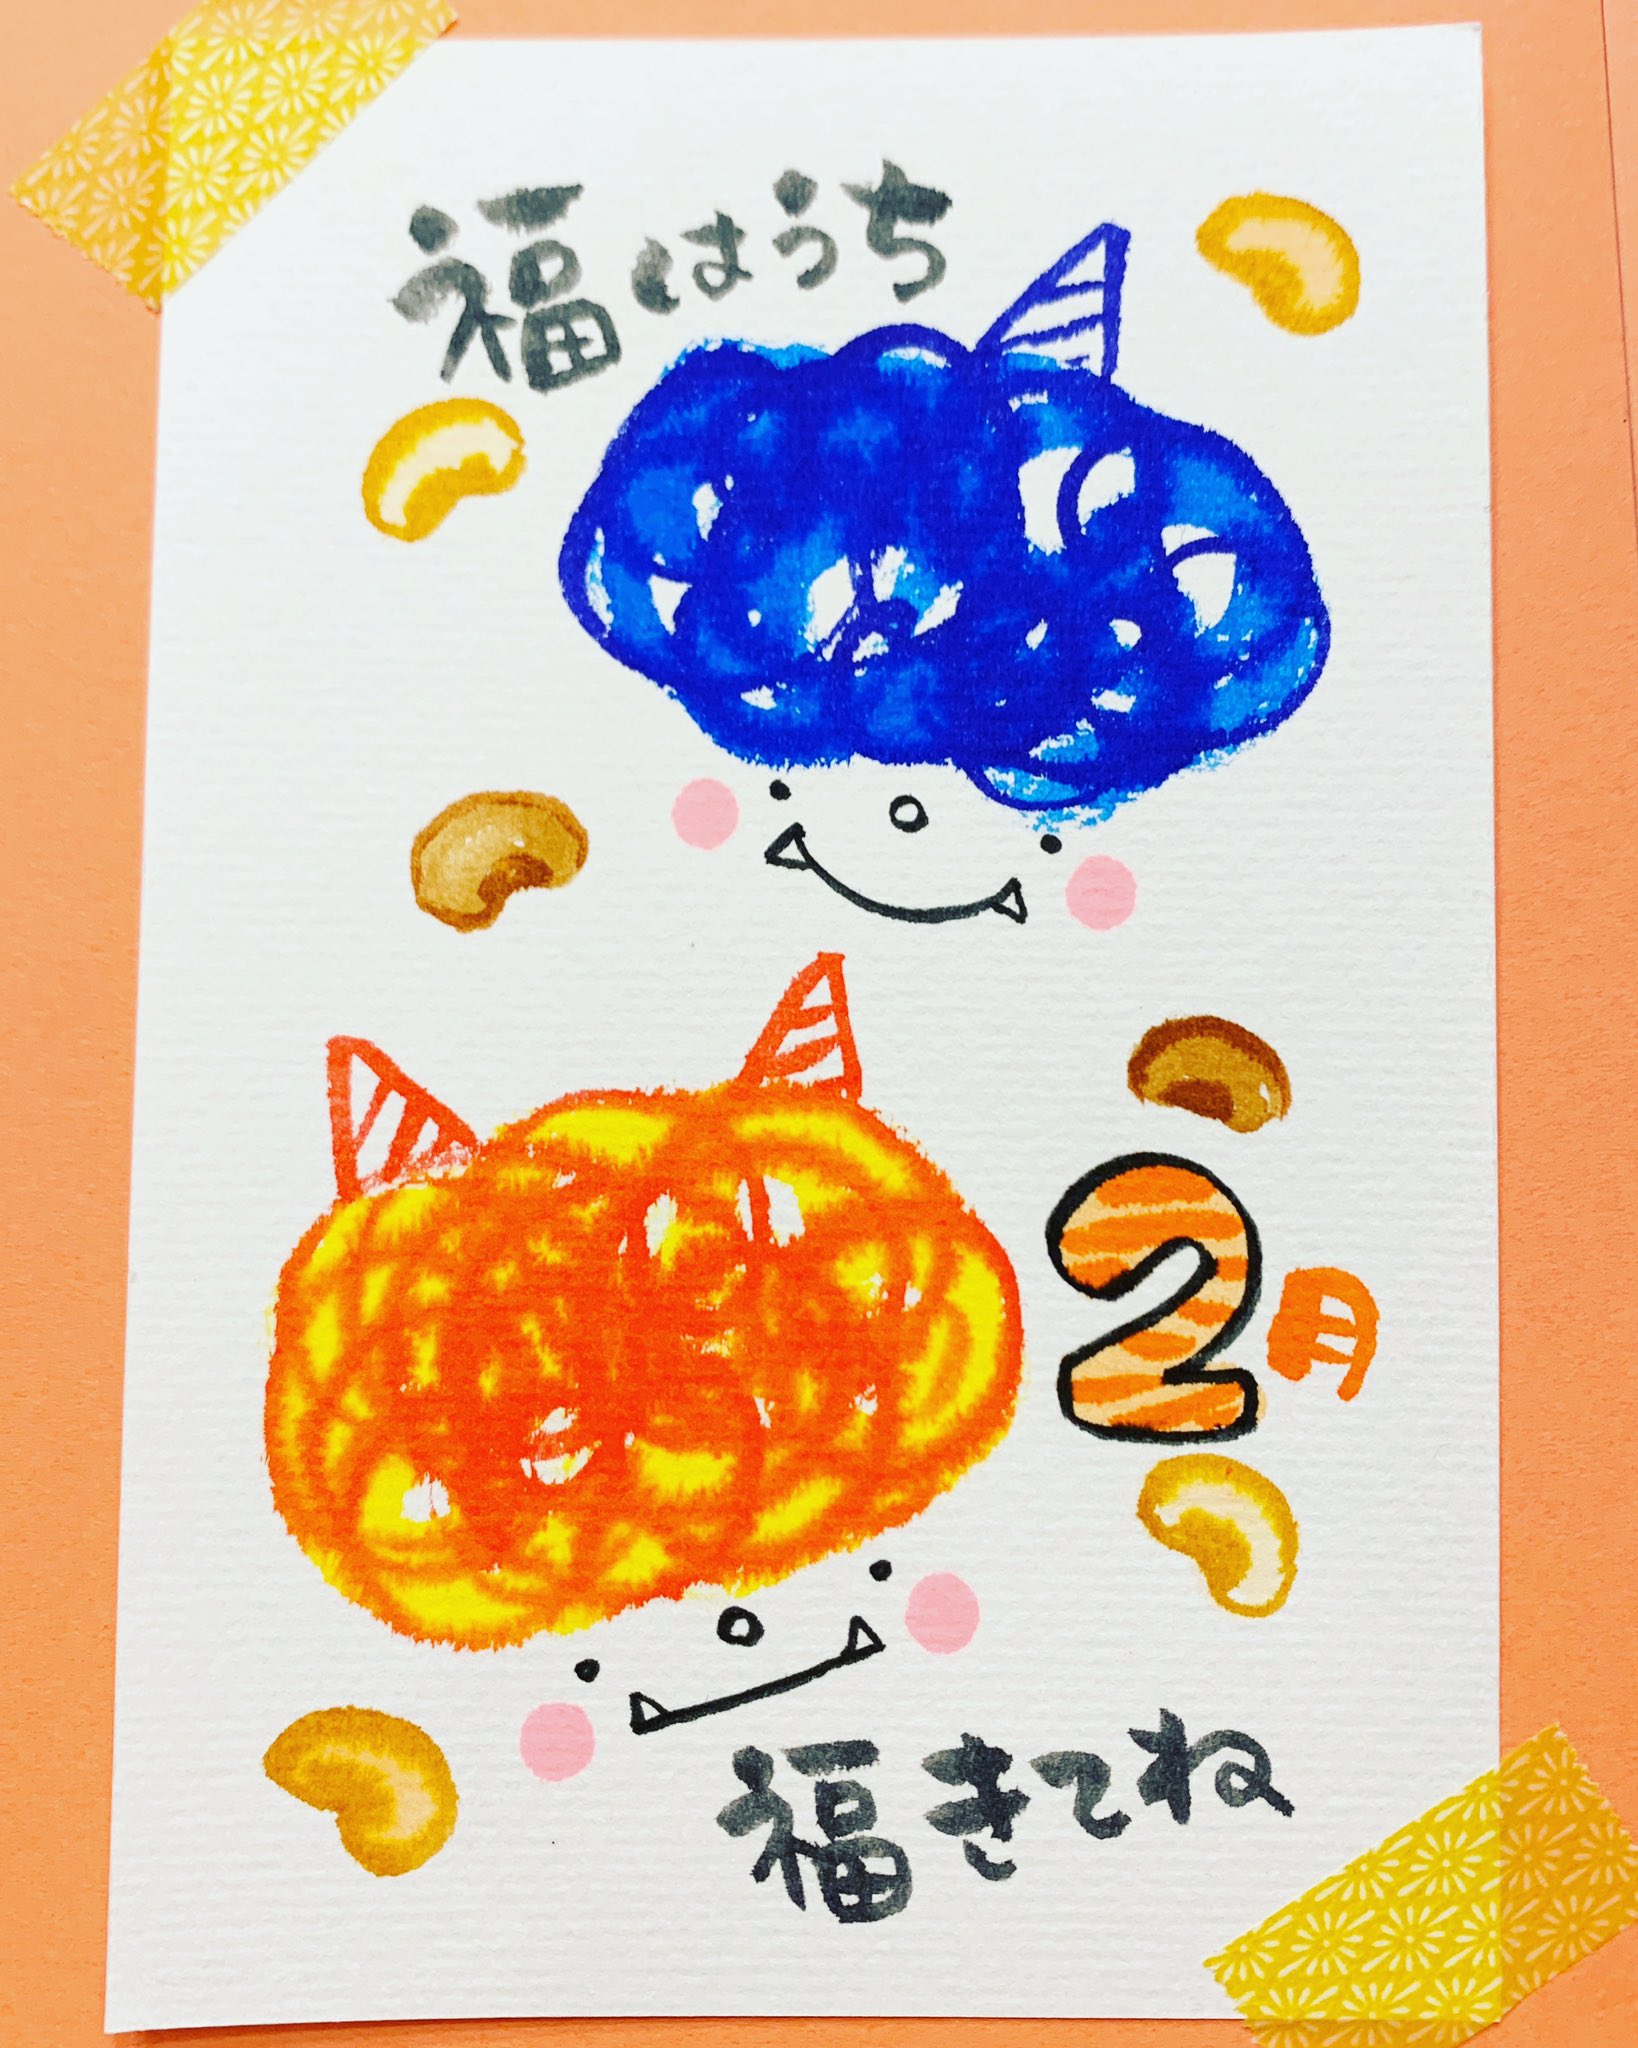 福はうち
2月
福きてね